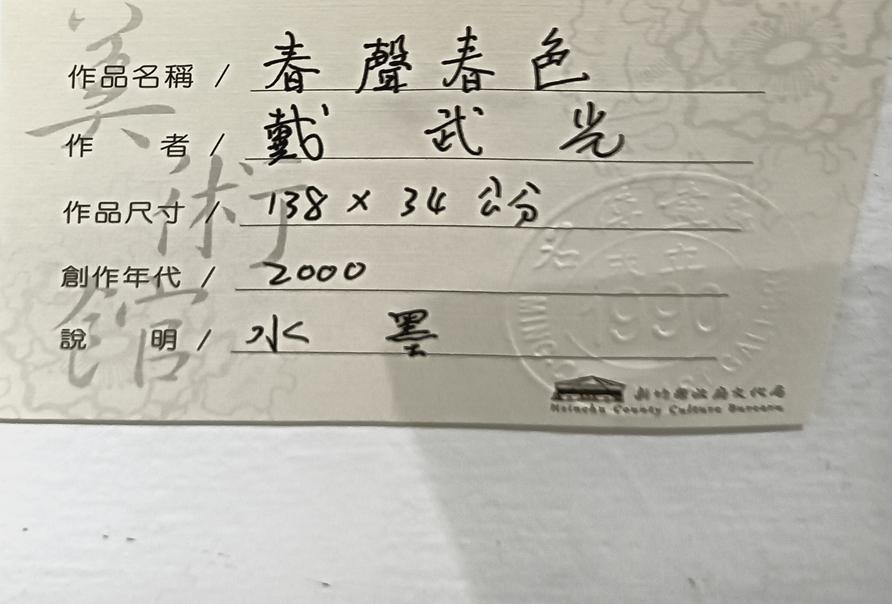 作品名稱 / 春聲春色
作者 / 戴武光
作品尺寸 / 138 x 34 公分
創作年代 / 2000
說明 / 水墨
美術館
1990
新竹縣政府文化局
Hsinchu County Culture Bureau